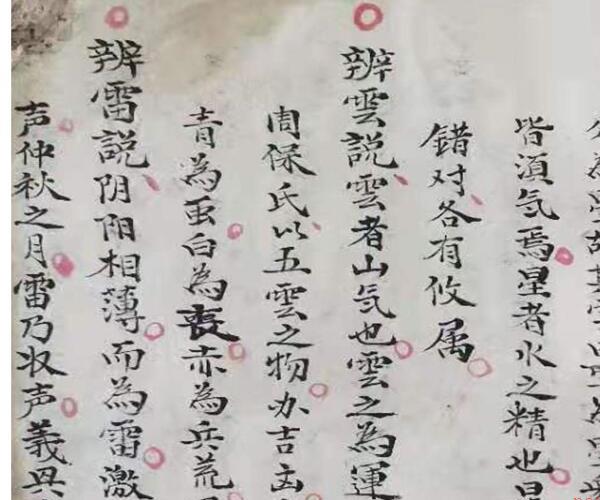 皆湏气焉星者水之精也
错对各有攸属
辨雲説雲者山气也雲之為運
周保氏以五雲之物办吉凶
青為䖝白為喪赤為兵荒
辨雷説阴阳相薄而為雷激
声仲秋之月雷乃収声義具